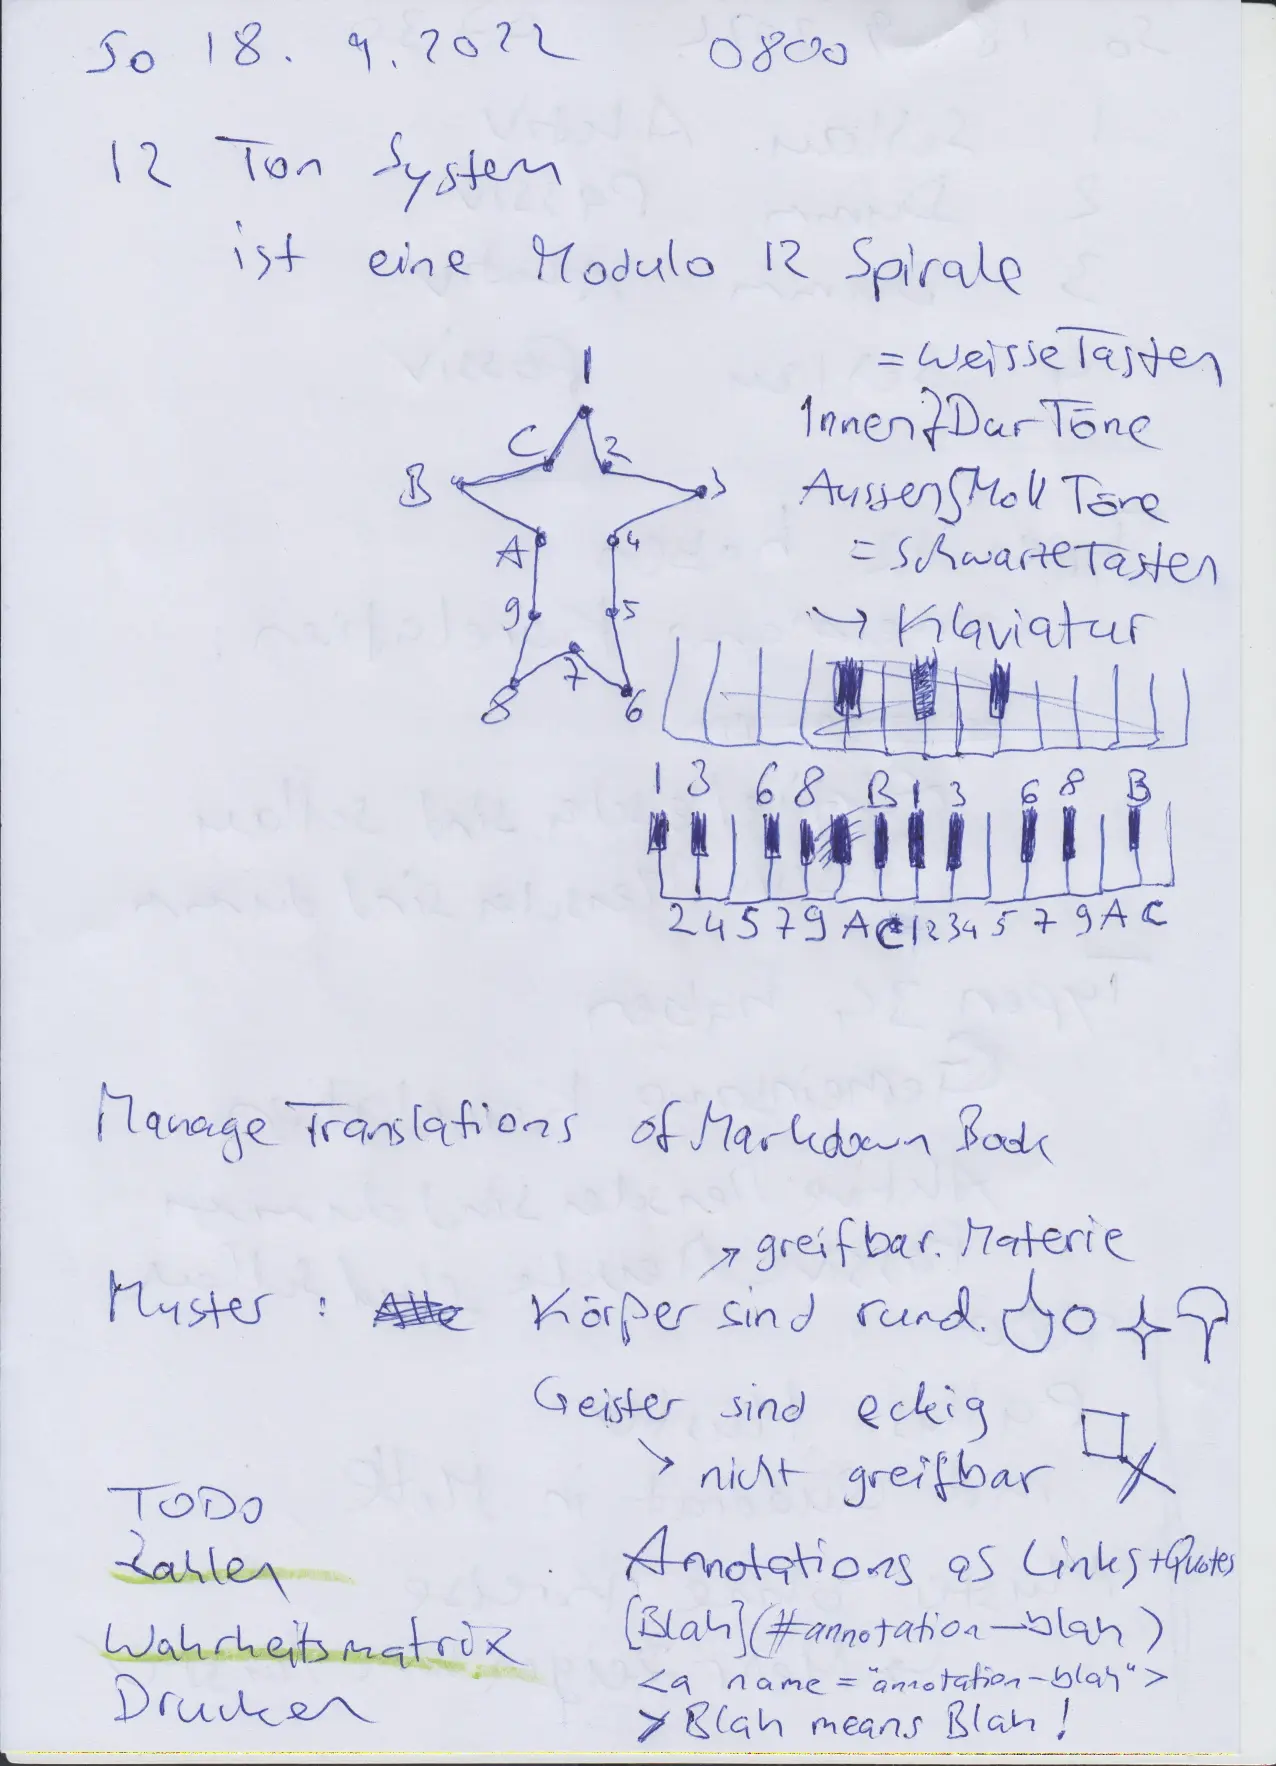 So 18. 9. 2022 0800
12 Ton System
ist eine Modulo 12 Spirale
= Weisse Tasten
Innen} Dur Töne
Aussen} Moll Töne
= Schwarze Tasten
→ Klaviatur
1
C 2
B 3
A 4
9 5
7
8 6
1 3 6 8 B 1 3 6 8 B
2 4 5 7 9 A C 1 2 3 4 5 7 9 A C
Manage Translations of Markdown Book
↗ greifbar. Materie
Muster : Körper sind rund.
Geister sind eckig
↘ nicht greifbar
TODO
Zahlen
Wahrheitsmatrix
Drucken
Annotations as Links + Quotes
[Blah](#annotation-blah)
<a name="annotation-blah">
> Blah means Blah!